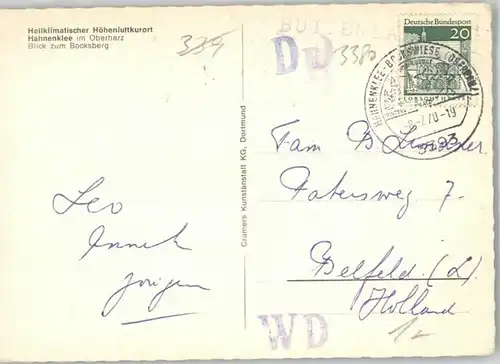 Heilklimatischer Höhenluftkurort
Hahnenklee im Oberharz
Blick zum Bocksberg
Deutsche Bundespost
20
HAHNENKLEE-BOCKSWIESE (OBERHARZ)
-7.70-19
3393
3380
Leo
Annek
Cramers Kunstanstalt KG, Dortmund
Fam B
Patersweg 7.
Belfeld (L.)
Holland
WD